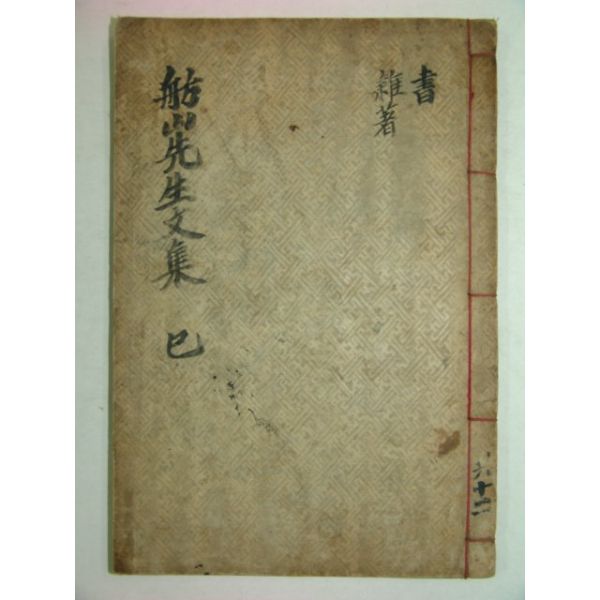 書
雜著
舫山先生文集 巳
六
十二